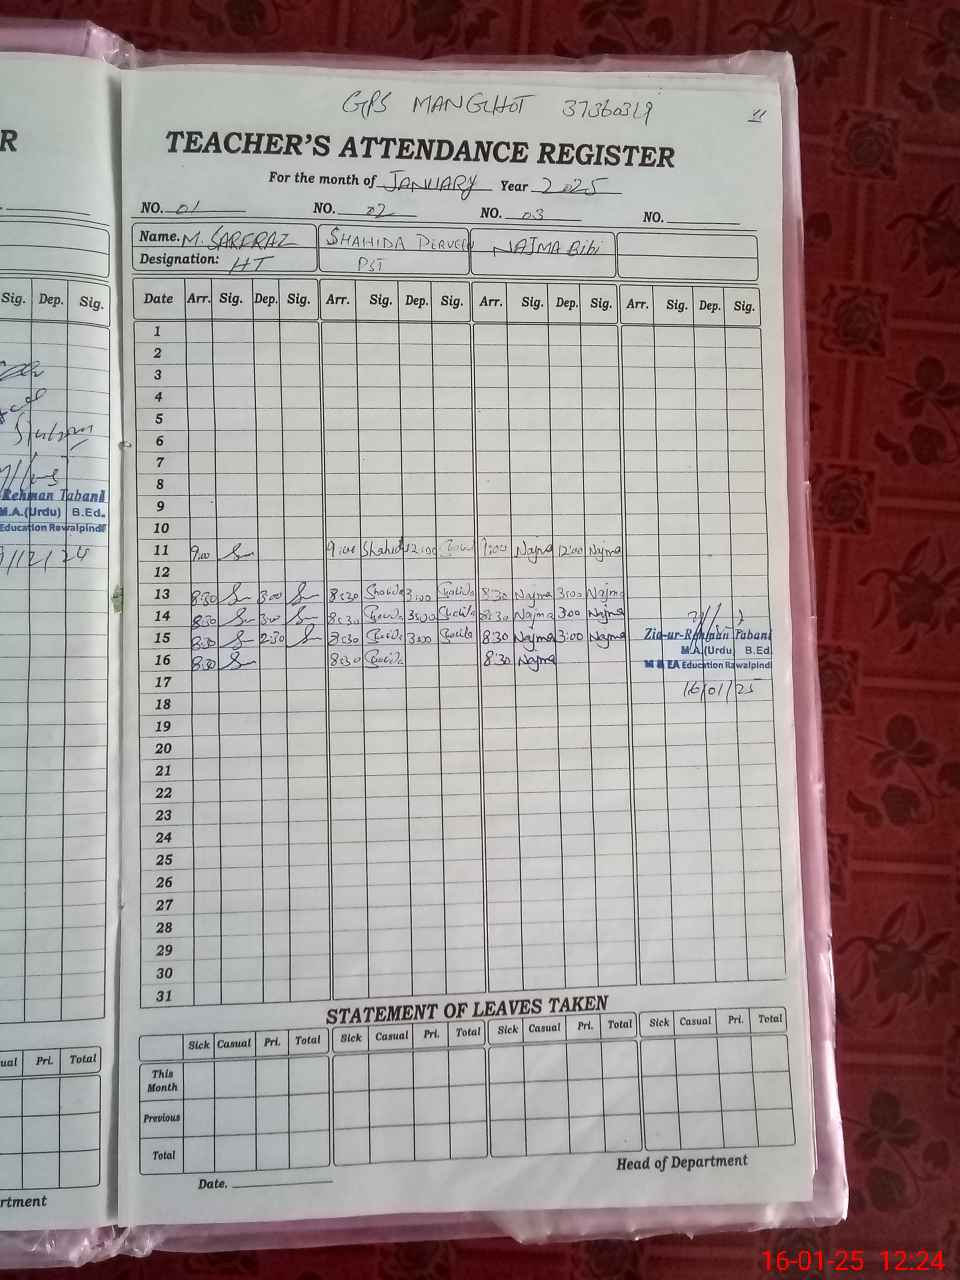 GPS MANGHOT 37360319 11
TEACHER'S ATTENDANCE REGISTER
For the month of JANUARY Year 2025
NO. 01 NO. 02 NO. 03 NO.
Name. M. SARFRAZ SHAHIDA PERVEEN NAJMA Bibi
Designation: HT PST
Date Arr. Sig. Dep. Sig. Arr. Sig. Dep. Sig. Arr. Sig. Dep. Sig. Arr. Sig. Dep. Sig.
1
2
3
4
5
6
7
8
9
10
11 9,00 9:00 Shahida 12:00 9:00 Najma 12:00 Najma
12
13 8:30 3:00 8:30 Shahida 3:00 Shahida 8:30 Najma 3:00 Najma
14 8:30 3:00 8:30 Shahida 3:00 Shahida 8:30 Najma 3:00 Najma
15 8:30 2:30 8:30 Shahida 3:00 Shahida 8:30 Najma 3:00 Najma
16 8:30 8:30 Shahida 8:30 Najma
Zia-ur-Rehman Tabani
M.A.(Urdu) B.Ed.
M & EA Education Rawalpindi
16/01/25
17
18
19
20
21
22
23
24
25
26
27
28
29
30
31
STATEMENT OF LEAVES TAKEN
Sick Casual Pri. Total Sick Casual Pri. Total Sick Casual Pri. Total Sick Casual Pri. Total
This Month
Previous
Total
Date. Head of Department
R
Sig. Dep. Sig.
Rehman Tabani
M.A.(Urdu) B.Ed.
Education Rawalpindi
/12/24
ual Pri. Total
rtment
16-01-25 12:24